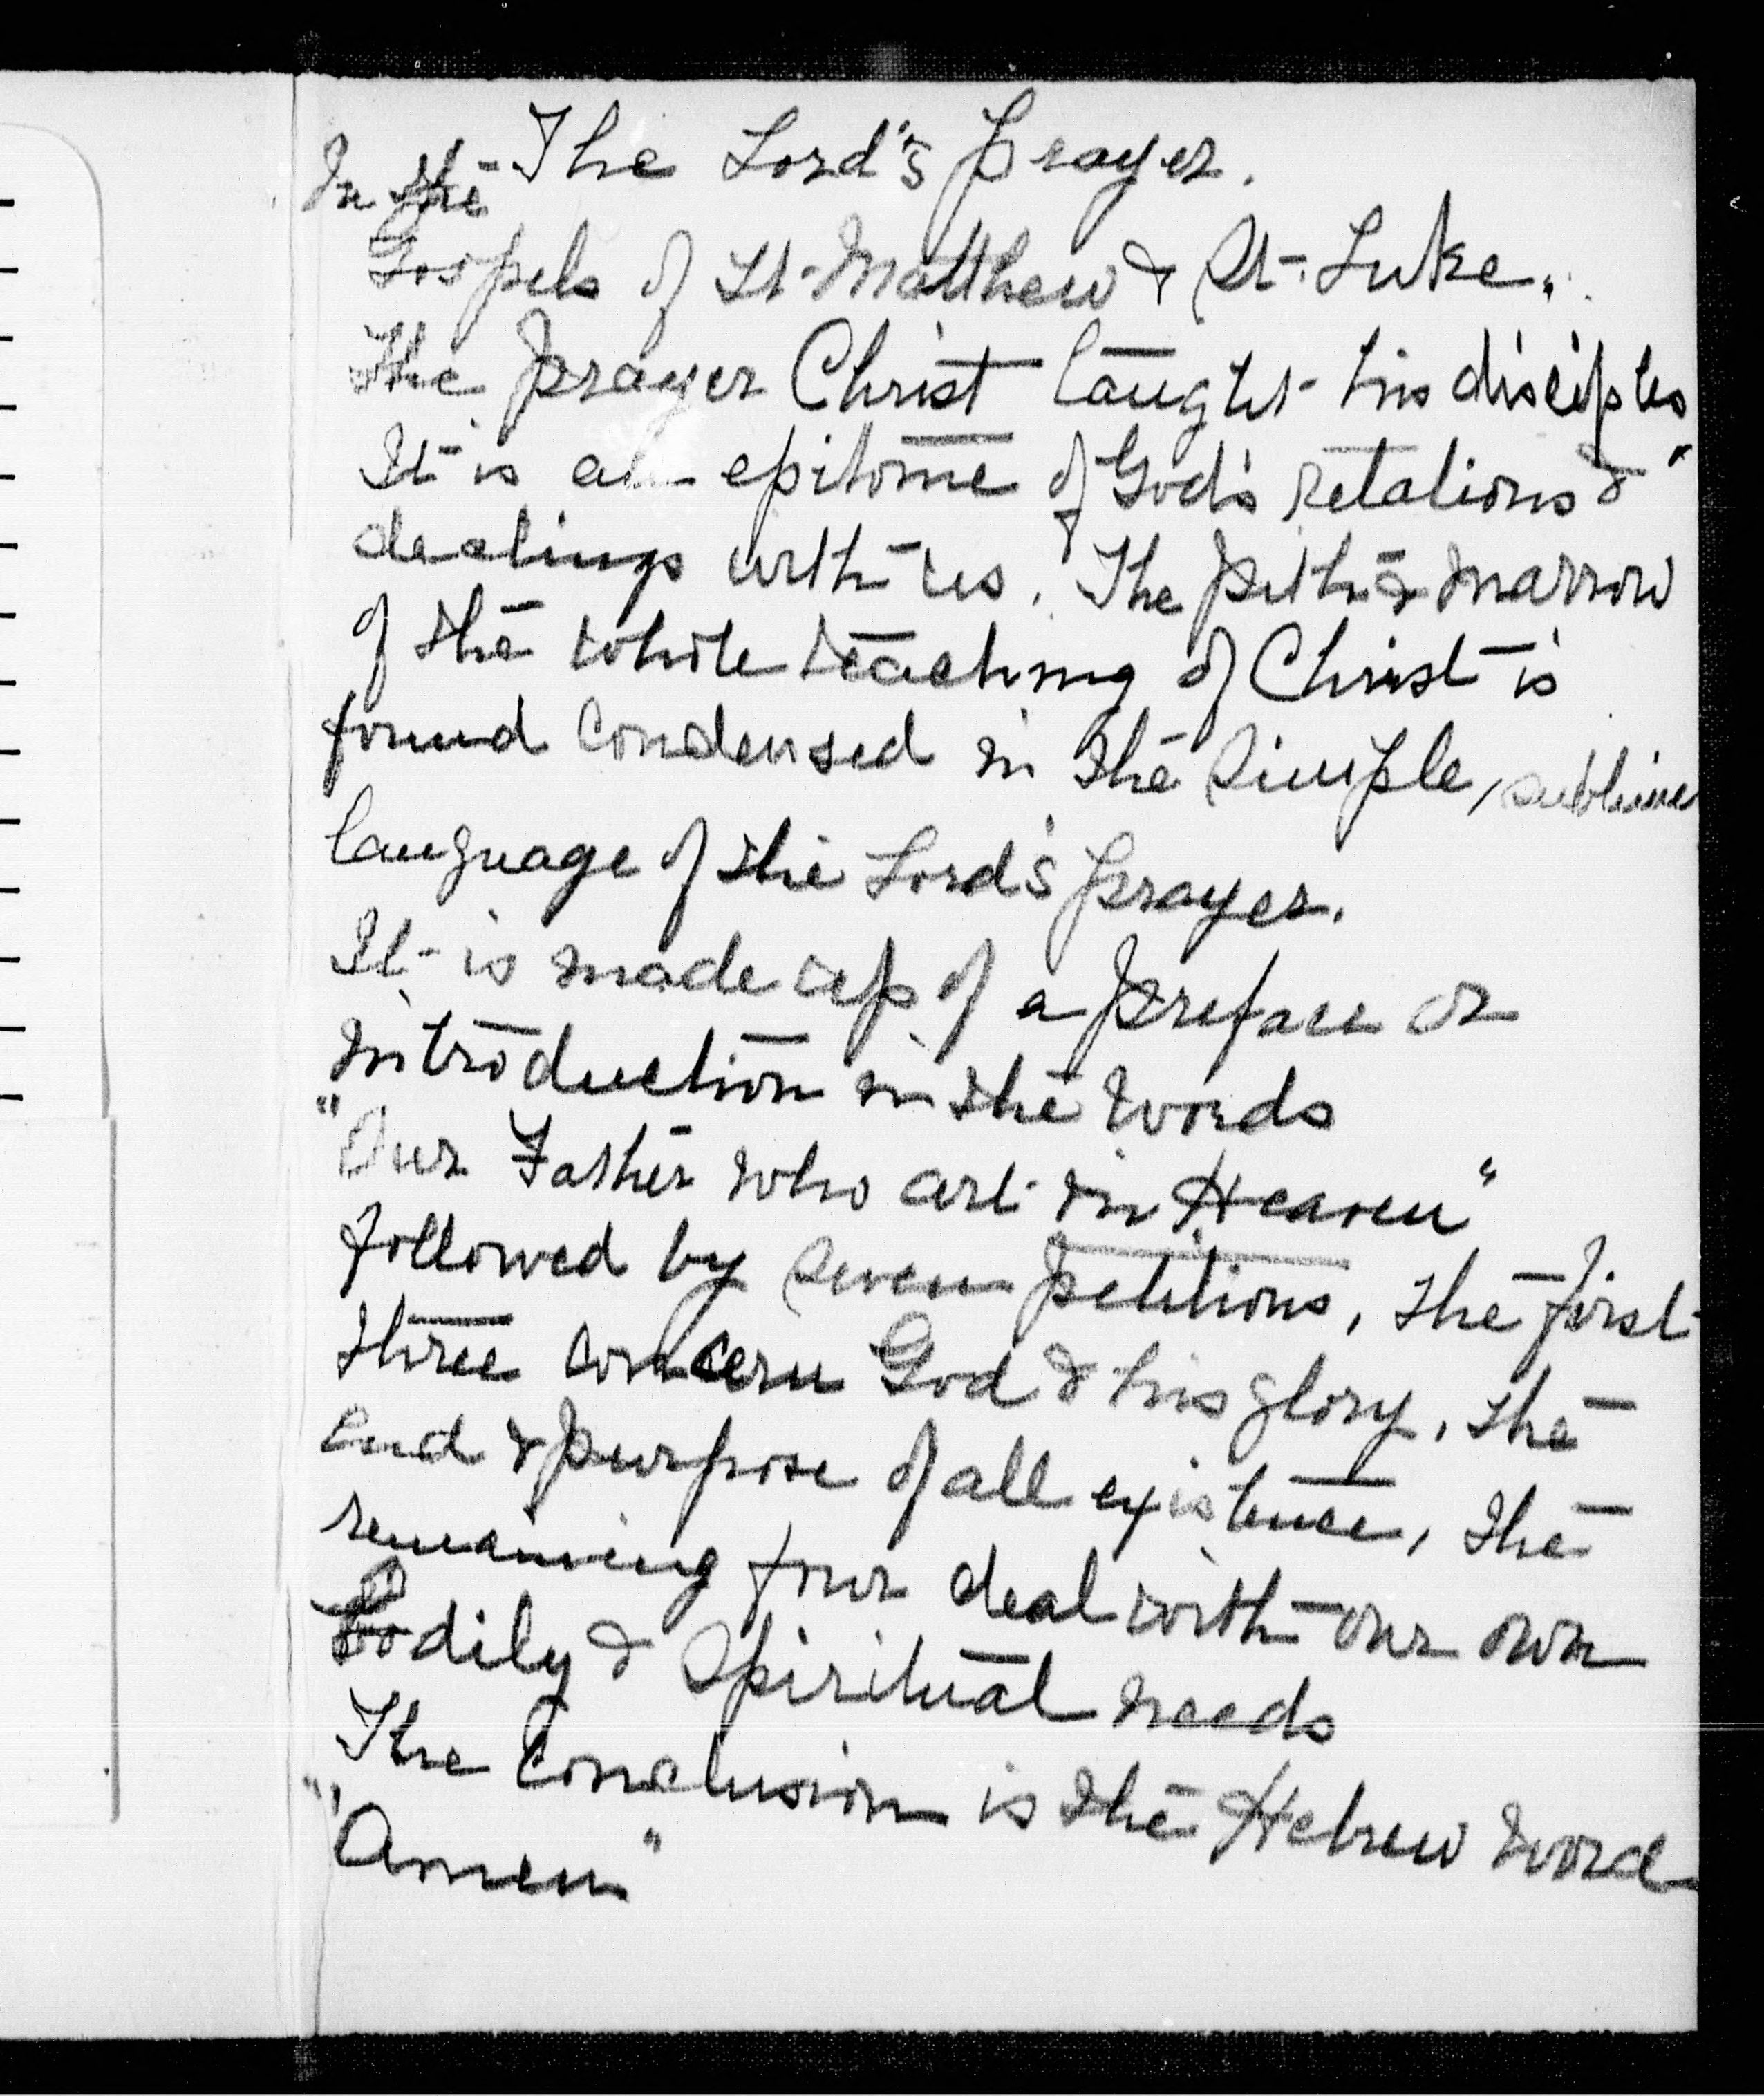 The Lord's Prayer.
In the
Gospels of St. Matthew & St. Luke.
The Prayer Christ taught his disciples
It is an epitome of God's relations &
dealings with us. The pith & marrow
of the whole teaching of Christ is
found condensed in the simple, sublime
language of the Lord's Prayer.
It is made up of a preface or
introduction in the words
"Our Father who art in Heaven"
followed by seven petitions, the first
three concern God & his glory, the
end & purpose of all existence, the
remaining four deal with our own
bodily & spiritual needs
The conclusion is the Hebrew word
"Amen"